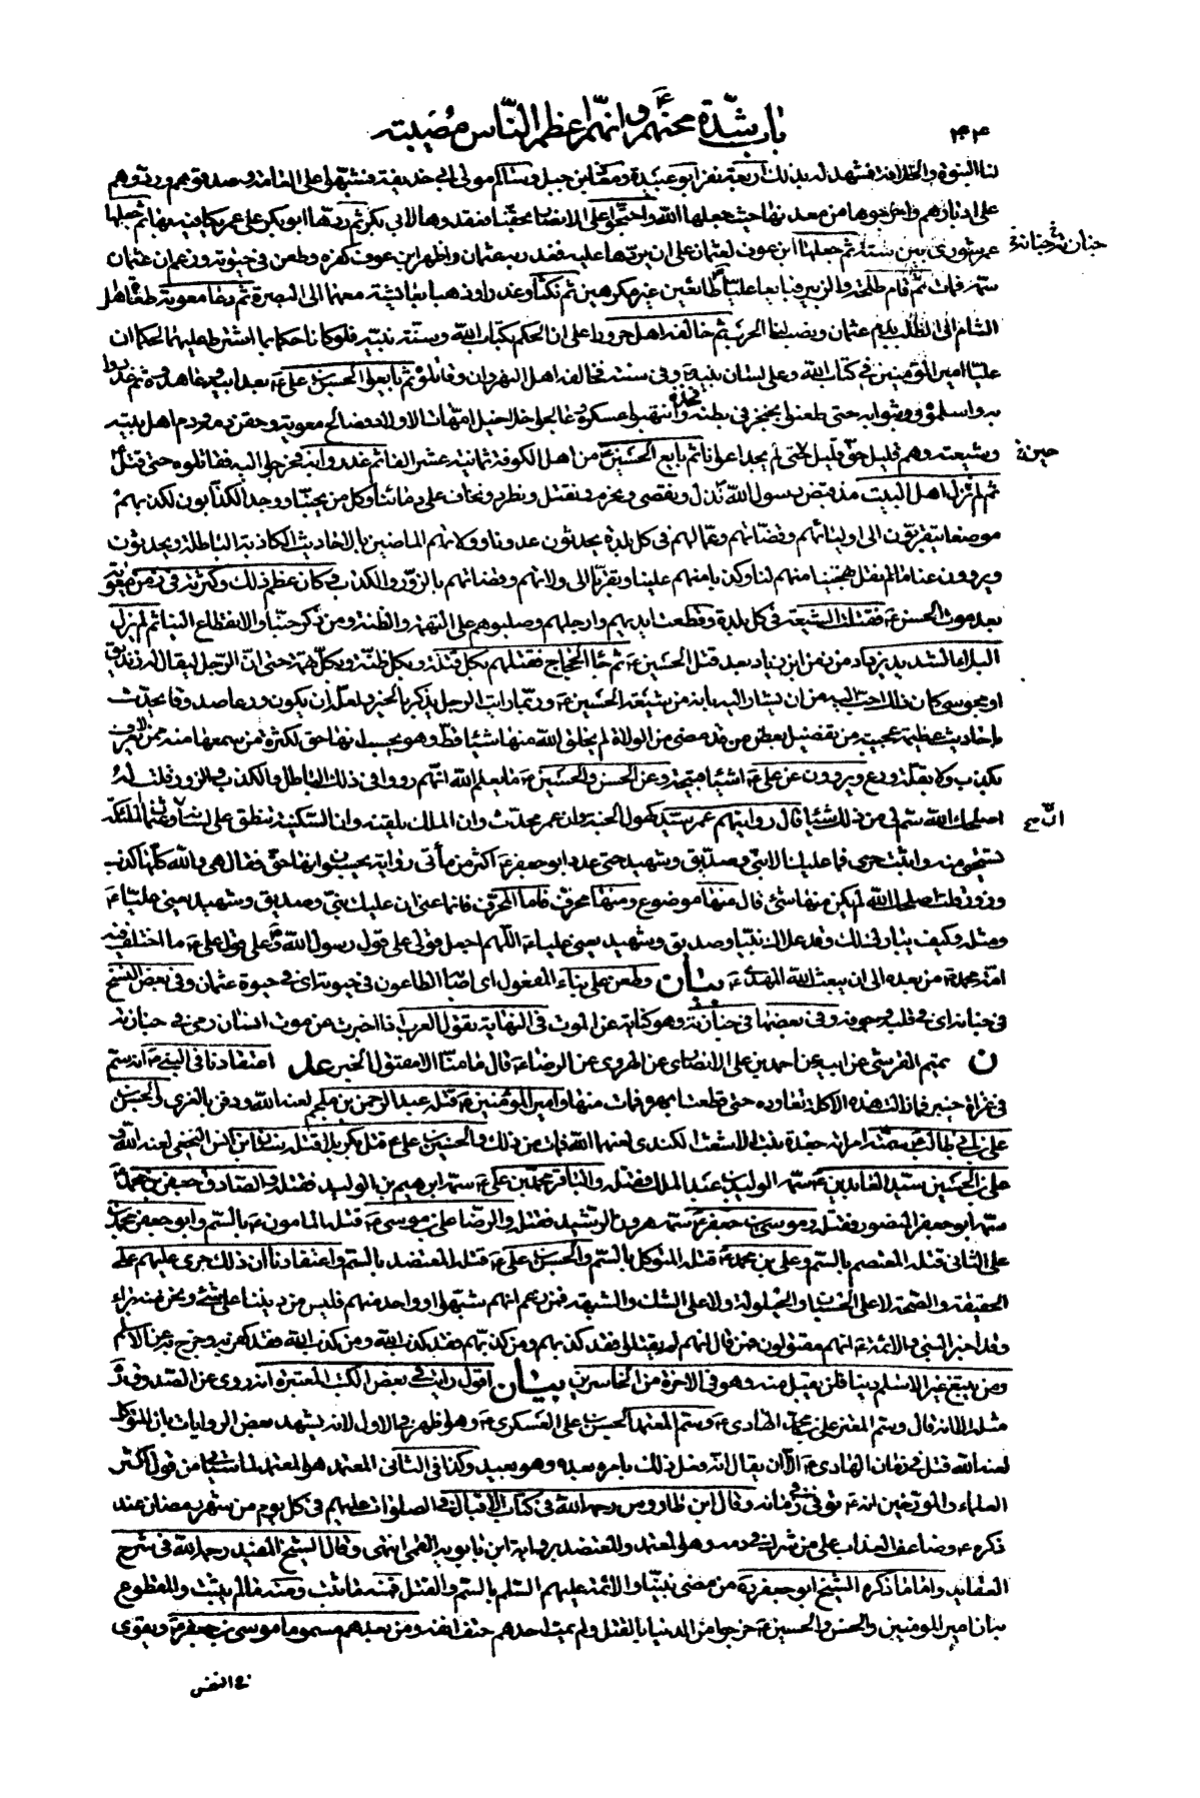 باب شدّة محنهم وانهم اعظم الناس مصيبة
۴۴
لنا النبوة والخلافة فشهد له بذلك اربعة نفر ابو عبيدة ومعاذ بن جبل وسالم مولى ابي حذيفة فشبهوا على العامة وصدقوهم وردوهم
على ادبارهم واخرجوها من معدنها حيث جعلها الله واحتجوا على الانصار بحقنا فعقدوها لابي بكر ثم ردها ابو بكر على عمر يكافيه بها ثم جعلها
عمر شورى بين ستة ثم جعلها ابن عوف لعثمان على ان يردها عليه فغدر به عثمان واظهر ابن عوف كفره وطعن في حيوته وزعم ان عثمان
سمه فمات ثم قام طلحة والزبير فبايعا عليا طائعين غير مكرهين ثم نكثا وغدرا وذهبا بعايشة معهما الى البصرة ثم دعا معوية طغاة اهل
الشام الى الطلب بدم عثمان ونصب لنا الحرب ثم خالفه اهل حرورا على ان الحكم بكتاب الله وسنة نبيه فلو كانا حكما بما اشترط عليهما لحكما ان
عليا امير المؤمنين في كتاب الله وعلى لسان نبيه وفي سنته فخالفه اهل النهروان وقاتلوه ثم بايعوا الحسن بن علي بعد ابيه وعاهدوه ثم غدروا
به واسلموه ووثبوا به حتى طعنوا بخنجر في فخذه وانتهبوا عسكره وعالجوا خلاخيل امهات الاولاد فصالح معوية وحقن دمه ودم اهل بيته
وشيعته وهم قليل حق قليل حتى لم يجد اعوانا ثم بايع الحسين من اهل الكوفة ثمانية عشر الفا ثم غدروا به فخرجوا اليه فقاتلوه حتى قتل
ثم لم نزل اهل البيت مذ قبض رسول الله نذل ونقصى ونحرم ونقتل ونطرد ونخاف على دمائنا وكل من يحبنا ووجد الكذابون لكذبهم
موضعا يتقربون الى اوليائهم وقضاتهم وعمالهم في كل بلدة يحدثون عدونا وولاتهم الماضين بالاحاديث الكاذبة الباطلة ويحدثون
ويروون عنا ما لم نقل تهجينا منهم لنا وكذبا منهم علينا وتقربا الى ولاتهم وقضاتهم بالزور والكذب وكان عظم ذلك وكثرته في زمن معوية
بعد موت الحسن فقتلت الشيعة في كل بلدة وقطعت ايديهم وارجلهم وصلبوهم على التهمة والظنة ومن ذكر حبنا والانقطاع الينا ثم لم يزل
البلاء يشتد ويزداد من زمن ابن زياد بعد قتل الحسين ثم جاء الحجاج فقتلهم بكل قتلة وبكل ظنة وبكل تهمة حتى ان الرجل ليقال له زنديق
او مجوسي كان ذلك احب اليه من ان يشار اليه بانه من شيعة الحسين وربما رايت الرجل يذكر بالخير ولعله ان يكون ورعا صدوقا يحدث
باحاديث عظيمة عجيبة من تفضيل بعض من قد مضى من الولاة لم يخلق الله منها شيئا قط وهو يحسب انها حق لكثرة من سمعها منه ممن لا يعرف
بكذب ولا بقلة ورع ويروون عن علي اشياء قبيحة وعن الحسن والحسين ما يعلم الله انهم رووا في ذلك الباطل والكذب والزور قلت له
اصلحك الله سم لي من ذلك شيئا قال روايتهم عمر سيد كهول الجنة وان عمر محدث وان الملك يلقنه وان السكينة تنطق على لسانه وعثمان الملائكة
تستحي منه واثبت حرى فما عليك الا نبي وصديق وشهيد حتى عدد ابو جعفر اكثر من مأتي رواية يحسبون انها حق فقال هي والله كلها كذب
وزور قلت اصلحك الله لم يكن منها شئ قال منها موضوع ومنها محرف فاما المحرف فانما عنى ان عليك نبي وصديق وشهيد يعني عليا
ومثله وكيف يبارك لك وقد علاك نبي وصديق وشهيد يعني عليا اللهم اجعل قولي على قول رسول الله وعلى قول علي ما اختلف فيه
امة محمد من بعده الى ان يبعث الله المهدي بيان وطعن على بناء المفعول اي اصابه الطاعون في حيوته اي في حيوة عثمان وفي بعض النسخ
في جنانه اي في قلبه وجوفه وفي بعضها في جنازته وهو كناية عن الموت في النهاية يقول العرب اذا اخبرت عن موت انسان رمي في جنازته
ن تميم القرشي عن ابيه عن احمد بن علي الانصاري عن الهروي عن الرضا قال ما منا الا مقتول الخبر عد اعتقادنا في النبي انه سم
في غزاة خيبر فما زالت هذه الاكلة تعاوده حتى قطعت ابهره فمات منها وامير المؤمنين قتله عبد الرحمن بن ملجم لعنه الله ودفن بالغري والحسن بن
علي بن ابي طالب سمته امراته جعدة بنت الاشعث الكندي لعنهما الله فمات من ذلك والحسين بن علي قتل بكربلا قتله سنان بن انس النخعي لعنه الله و
علي بن الحسين سيد العابدين سمه الوليد بن عبد الملك فقتله والباقر محمد بن علي سمه ابرهيم بن الوليد فقتله والصادق جعفر بن محمد
سمه ابو جعفر المنصور فقتله وموسى بن جعفر سمه هرون الرشيد فقتله والرضا علي بن موسى قتله المامون بالسم وابو جعفر محمد بن
علي الثاني قتله المعتصم بالسم وعلي بن محمد قتله المتوكل بالسم والحسن بن علي قتله المعتضد بالسم واعتقادنا ان ذلك جرى عليهم على
الحقيقة والصحة لا على الحسبان والحيلولة ولا على الشك والشبهة فمن زعم انهم شبهوا او واحد منهم فليس من ديننا على شئ ونحن منه براء
وقد اخبر النبي والائمة انهم مقتولون فمن قال انهم لم يقتلوا فقد كذبهم ومن كذبهم فقد كذب الله ومن كذب الله فقد كفر به وخرج به عن الاسلام
ومن يبتغ غير الاسلام دينا فلن يقبل منه وهو في الاخرة من الخاسرين بيان اقول رايت في بعض الكتب المعتبرة انه روى عن الصدوق ره
مثله الا انه قال وسم المعتز علي بن محمد الهادي وسم المعتمد الحسن بن علي العسكري وهو اظهر في الاول لانه يشهد بعض الروايات بان المتوكل
لعنه الله قتل في زمان الهادي الا ان يقال انه فعل ذلك بامره بعده وهو بعيد وكذا في الثاني المعتمد هو المعتمد لما سياتي من قول اكثر
العلماء والمؤرخين انه توفي في زمانه وقال ابن طاووس رحمه الله في كتاب الاقبال في الصلوات عليهم في كل يوم من شهر رمضان عند
ذكره وضاعف العذاب على من شرك في دمه وهو المعتمد والمعتضد برواية ابن بابويه القمي انتهى وقال الشيخ المفيد رحمه الله في شرح
العقايد واما ما ذكره الشيخ ابو جعفر ره من مضى نبينا والائمة عليهم السلم بالسم والقتل فمنه ما ثبت ومنه ما لم يثبت والمقطوع
به ان امير المومنين والحسن والحسين خرجوا من الدنيا بالقتل ولم يمت احدهم حتف انفه وممن بعدهم مسموما موسى بن جعفر ويقوى
في النفس